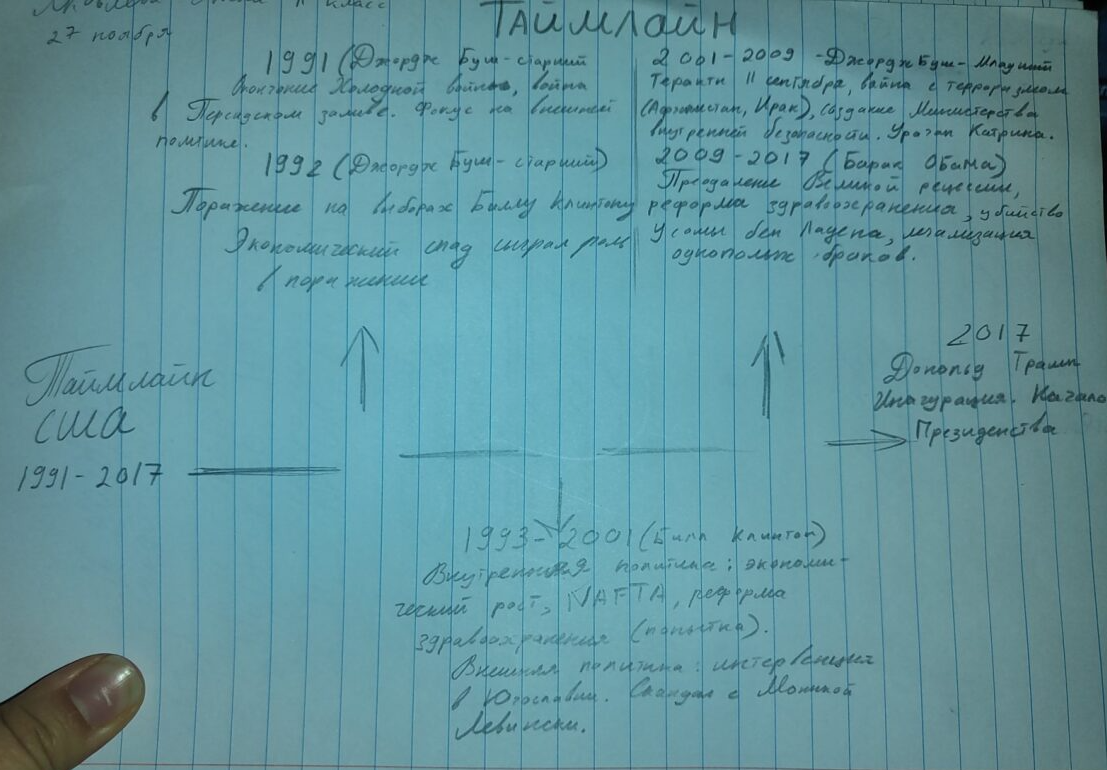 класс
27 ноября
Таймлайн
1991 (Джордж Буш-старший
Окончание Холодной войны, война
в Персидском заливе. Фокус на внешней
политике.
1992 (Джордж Буш-старший)
Поражение на выборах Биллу Клинтону
Экономический спад сыграл роль
в поражении
2001-2009 -Джордж Буш-Младший
Теракты 11 сентября, война с терроризмом
(Афганистан, Ирак), создание Министерства
внутренней безопасности. Ураган Катрина.
2009-2017 (Барак Обама)
Преодаление Великой рецессии,
реформа здравоохранения, убийство
Усамы бен Ладена, легализация
однополых браков.
Таймлайн
США
1991-2017
2017
Дональд Трамп
Инагурация. Начало
Президенства
1993-2001 (Билл Клинтон)
Внутренняя политика: экономи-
ческий рост, NAFTA, реформа
здравоохранения (попытка).
Внешняя политика: интервенция
в Югославии. Скандал с Моникой
Левински.